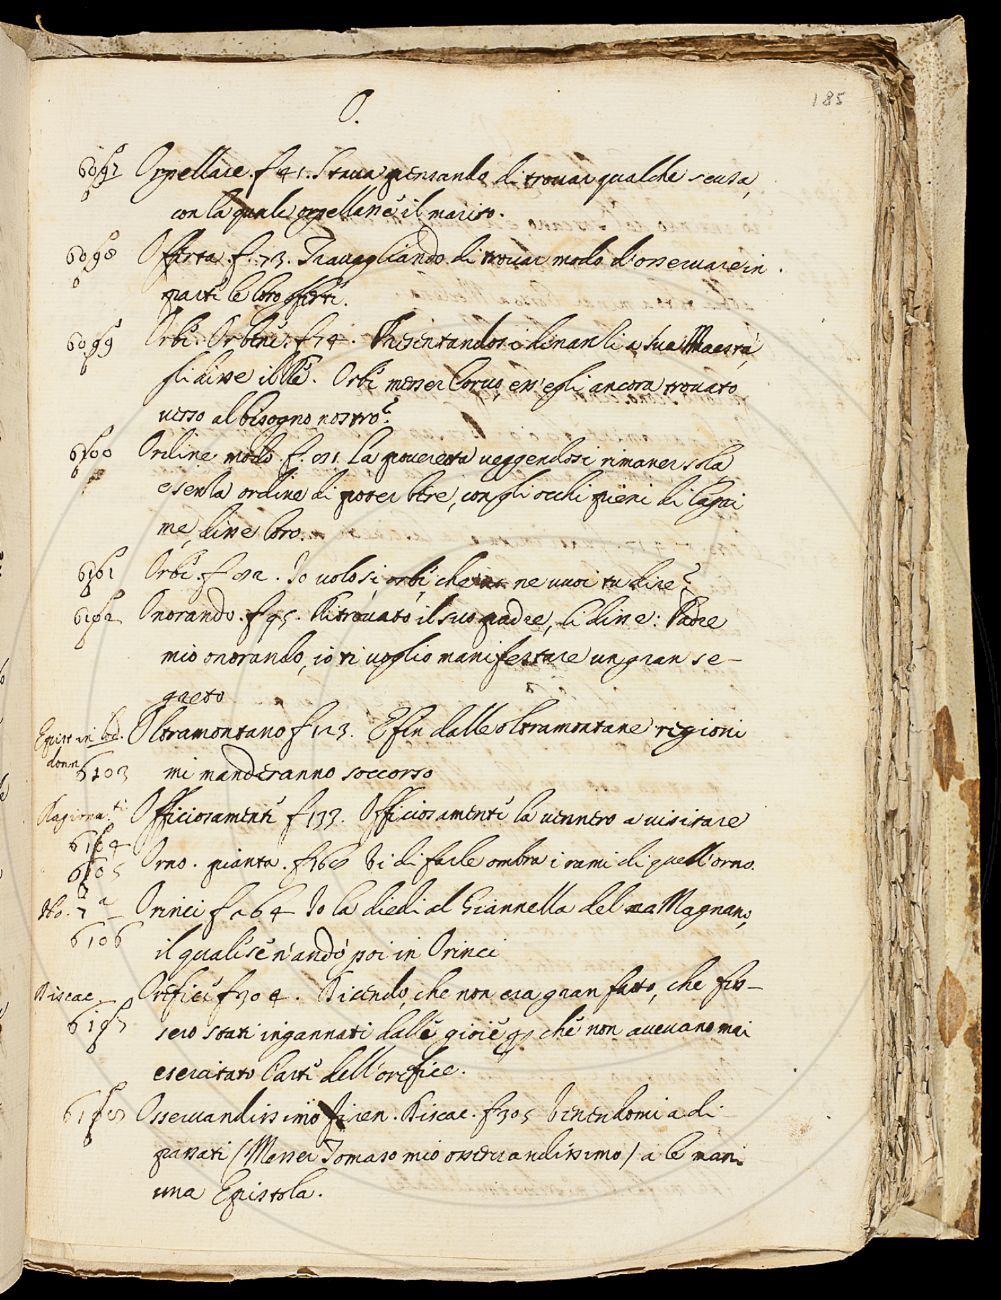 185
O.
6097 Oppellare. f 41. Staua pensando di trouar qualche scusa,
con la quale oppellasse il marito.
6098 Offerta f. 73. Trauagliando di trouar modo d'osseruare in
parte le loro offerte.
6099 Orbè. Orbene. f. 74. Presentandosi dinanzi a sua Maestà
gli disse il Rè. Orbè messer Coruo, ev'egli ancora trouato
verso al bisogno nostro?
6100 Ordine modo f. 91 La poueretta veggendosi rimaner sola
e senza ordine di poter bere, con gli occhi pieni di lagri
me, disse loro.
6101 Orbè. f. 92. Io volosi orbè che ne vuoi tu dire?
6102 Onorando. f 95. Ritrouato il suo padre, li disse: Padre
mio onorando, io ti voglio manifestare un gran se-
greto
Epist in lod. donn. 6103 Oltramontano f 123. E fin dalle oltramontane regioni
mi manderanno soccorso
Ragiona.ti 6104 Officiosamente f 133. Officiosamente la vennero a visitare
6105 Orno. pianta. f 160 Vi di facle ombra i rami di quell'orno.
No. 7a 6106 Orinci f 264 Io la diedi al Giannella del Magnano,
il quale se n'andò poi in Orinci
Discac. 6107 Orefice f 304. Dicendo, che non era gran fatto, che fos-
sero stati ingannati dalle gioie che non aveuano mai
esercitato l'arte dell'orefice.
6108 Osseruandissimo Firen. Discac. f 305 Venendomi a di
passati (Messer Tomaso mio osseruandissimo) a le mani
una Epistola.